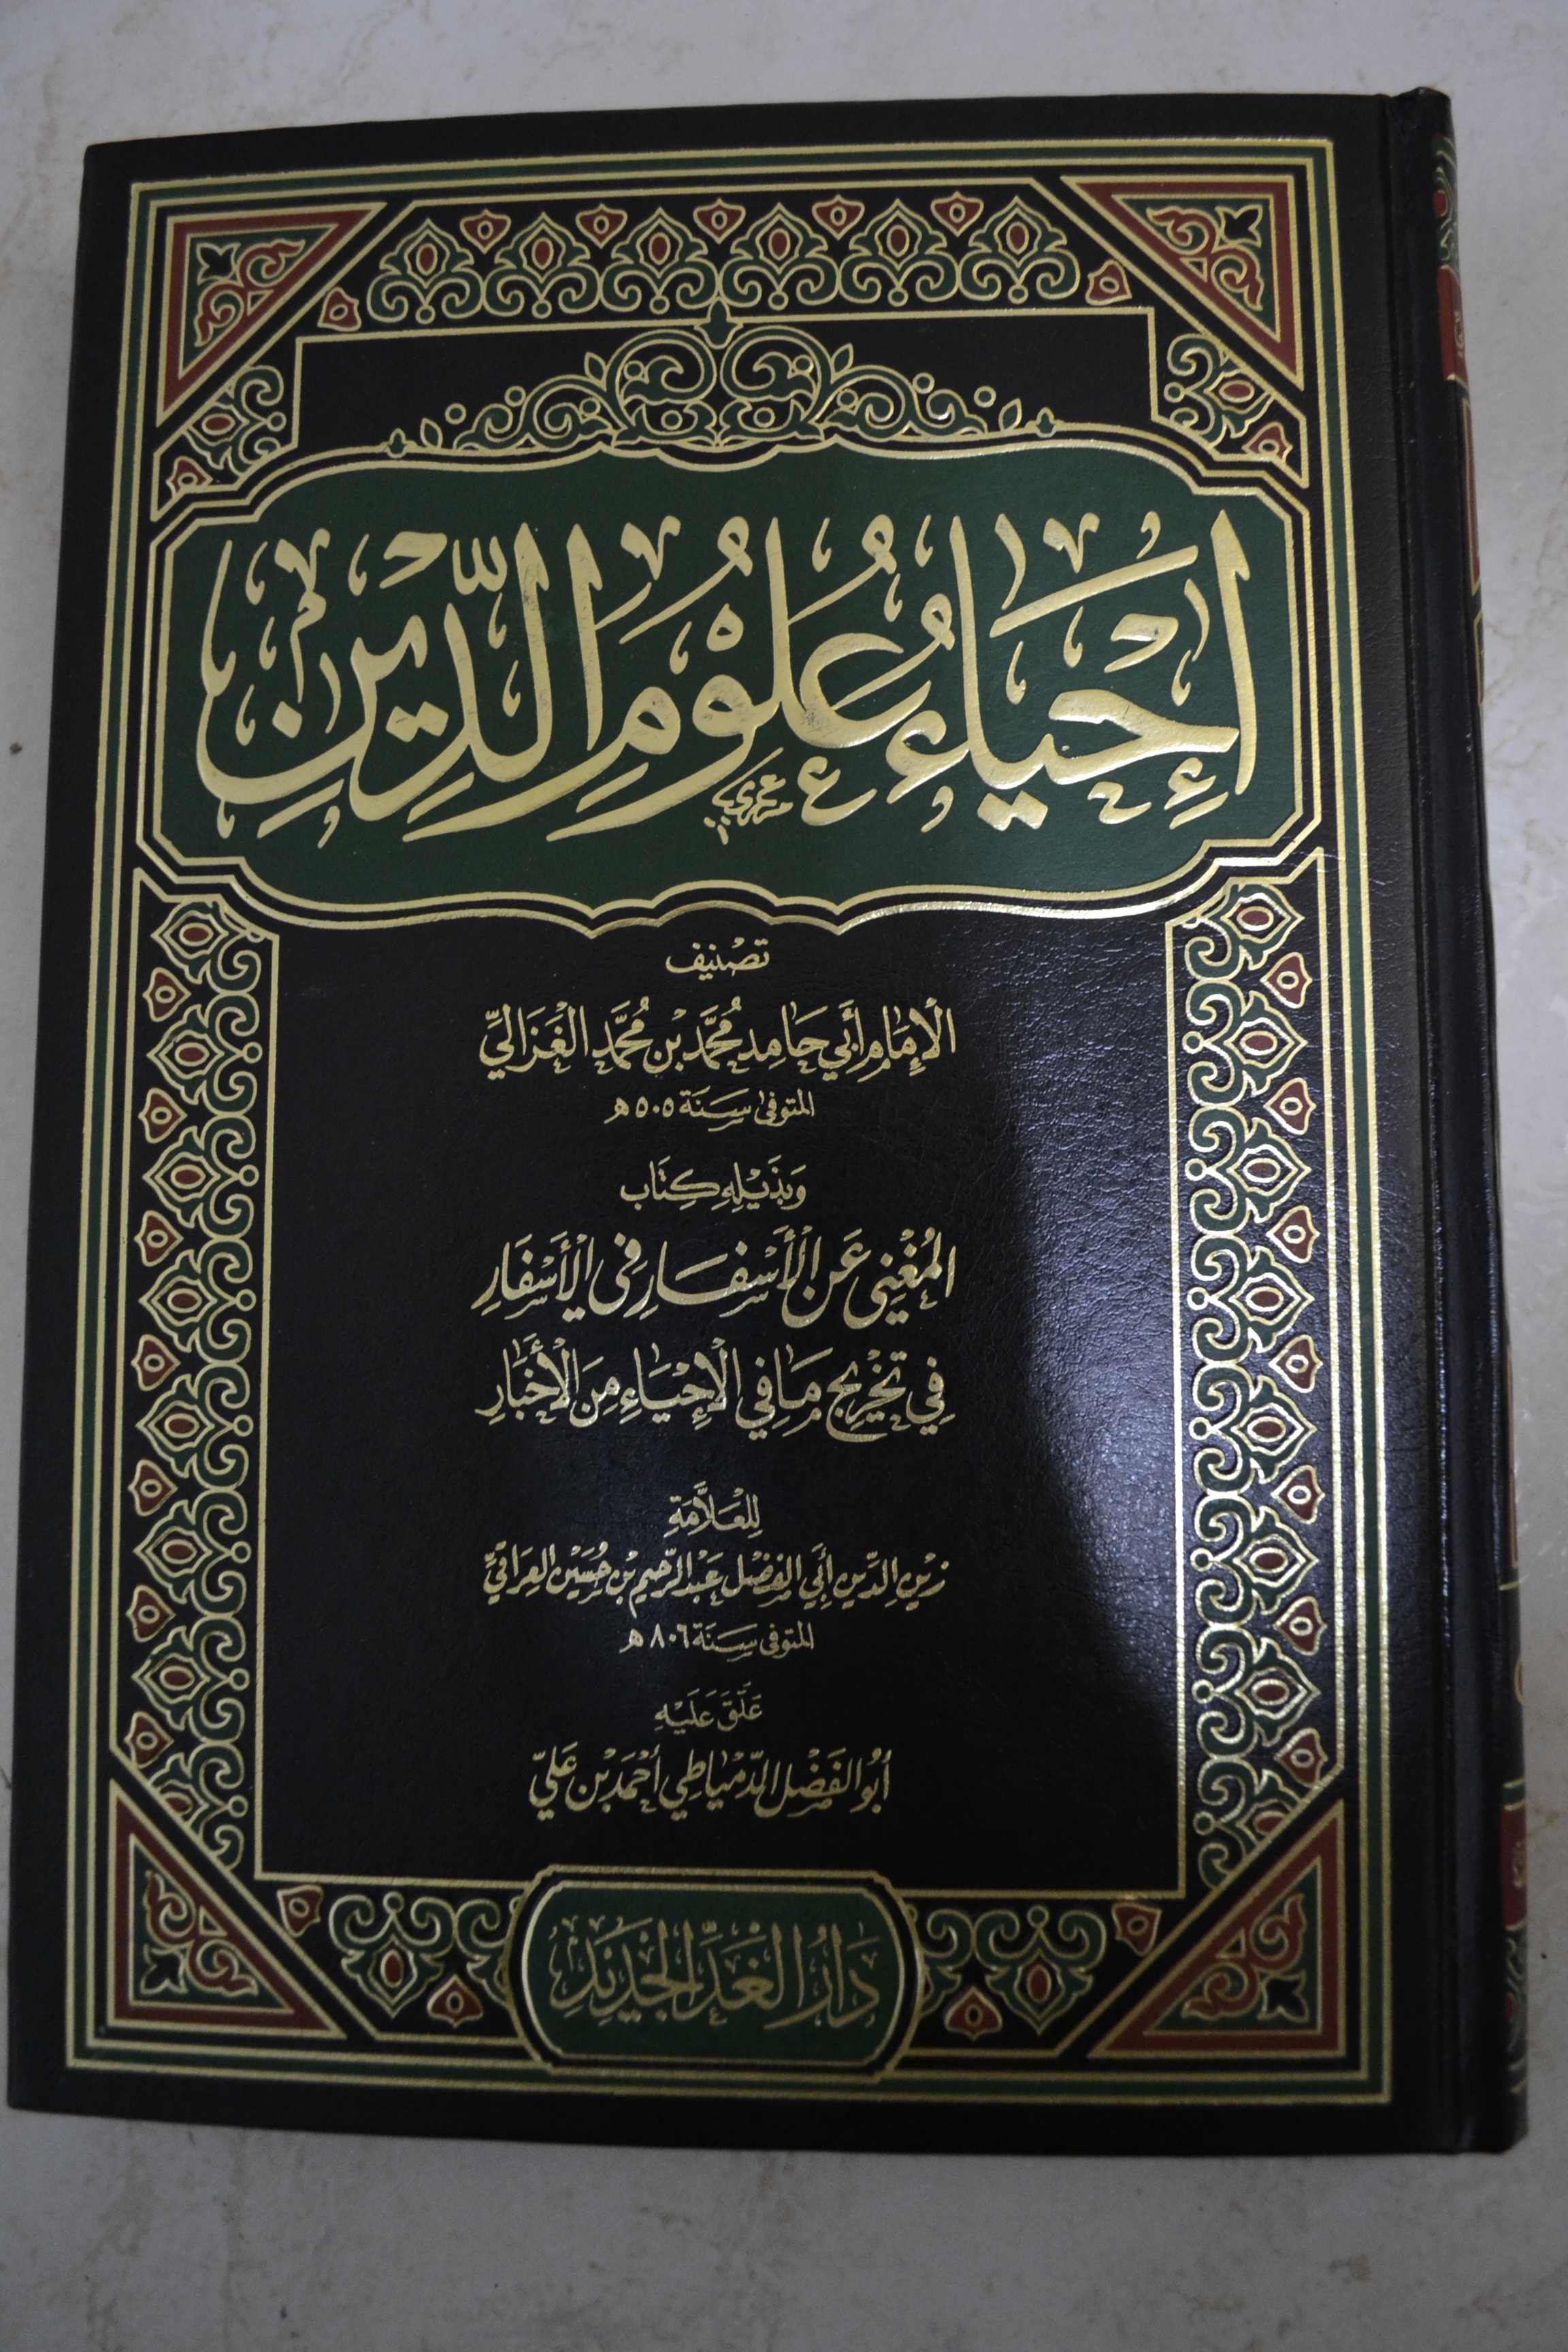 إِحْيَاءُ عُلُوْمِ الدِّيْنِ
تصْنيف
الْإِمَام أَبِي حَامِد مُحَمَّد بْن مُحَمَّد الْغَزَالِيّ
المتوفى سَنَة ٥٠٥ هـ
وَبذَيْلِهِ كِتَاب
الْمُغْنِي عَنِ الْأَسْفَارِ فِي الْأَسْفَارِ
فِي تَخْرِيْجِ مَا فِي الْإِحْيَاءِ مِنَ الْأَخْبَارِ
لِلْعَلَّامَةِ
زيْن الدِّين أَبِي الفَضْل عَبْد الرَّحِيم بْن حُسَيْن العِرَاقيّ
المتوفى سَنَة ٨٠٦ هـ
عَلَّقَ عَلَيْهِ
أَبُو الفَضْل الدّمْيَاطِي أَحْمَد بْن عَليّ
دَارُ الْغَدِّ الْجَدِيْدِ